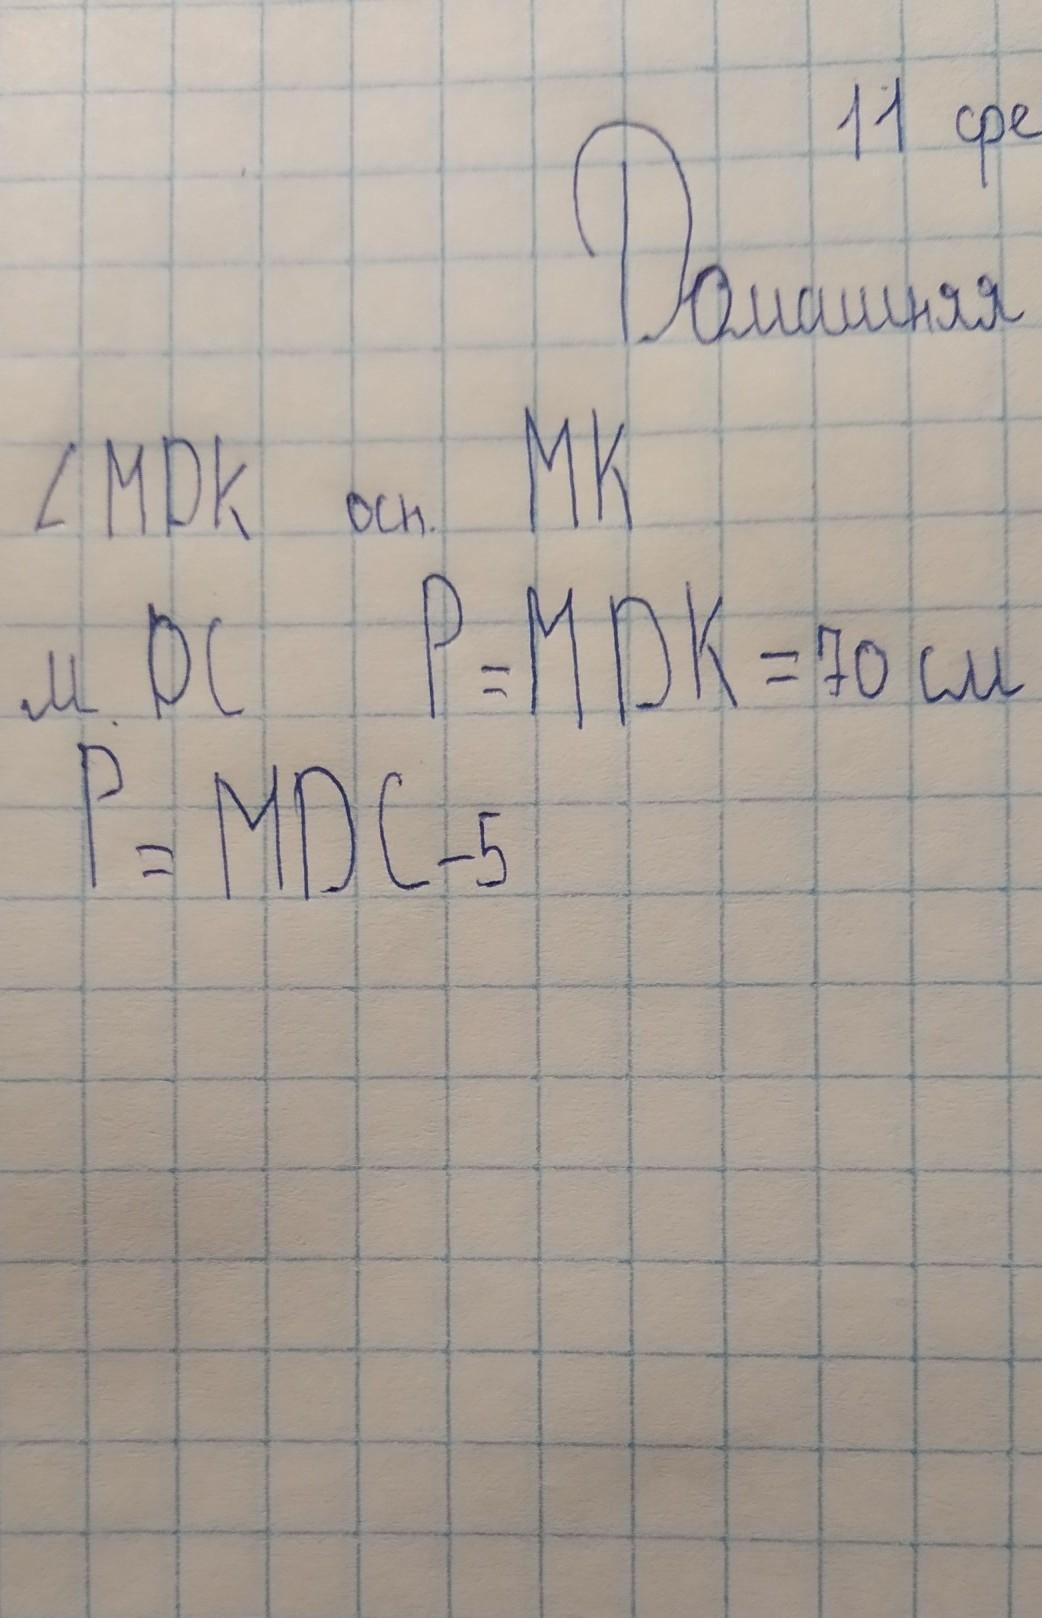 11 фе
Домашняя
∠MDK осн. MK
м. DC P=MDK=70 см
P=MDC-5